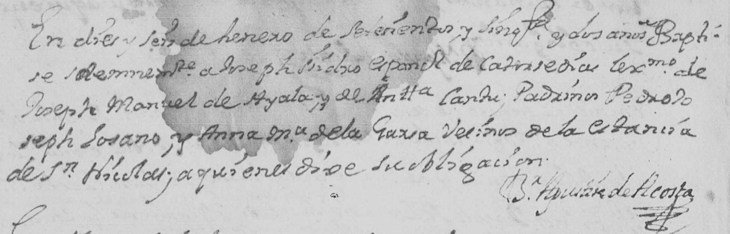 En dies y seis de henero de setesientos, y sinq.ta y dos años Bapti-
se solemnem.te a Joseph Isidro español de catorse dias lex.mo de
Joseph Manuel de Ayala, y de Antt.a Cantu; Padrinos Pedro Jo
seph Losano, y Anna M.a de la Garsa Vesinos de la estancia
de S.n Nicolas; a quienes dixe su obligacion.
B.r Agustin de Acosta